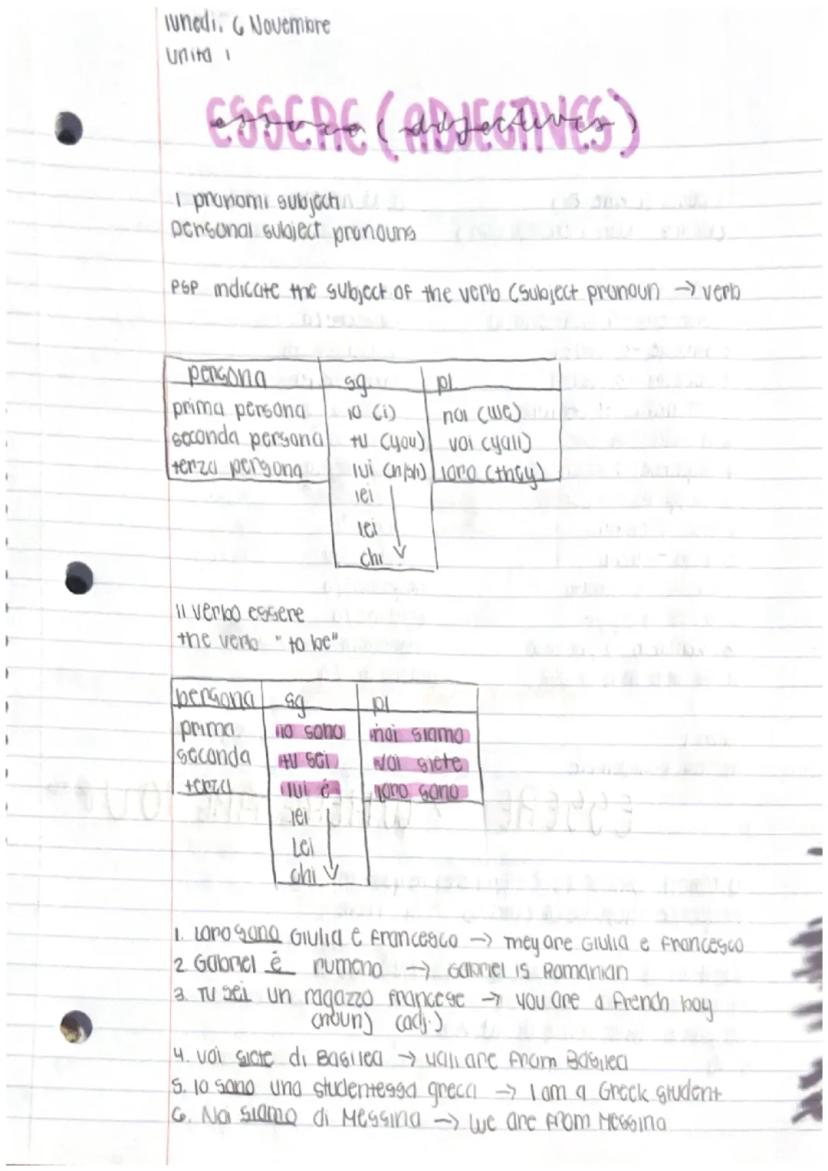 lunedì, 6 Novembre
Unità 1
ESSERE (ADJECTIVES)
essere (adjectives)
I pronomi subjecti
personal subject pronouns
PSP indicate the subject of the verb (subject pronoun → verb
persona sg pl
prima persona io (i) noi (we)
seconda persona tu (you) voi (yall)
terza persona lui (h/sh) loro (they)
lei
lei
chi
il verbo essere
the verb "to be"
persona sg pl
prima io sono noi siamo
seconda tu sei voi siete
terza lui é loro sono
lei
Lei
chi
1. Loro sono Giulia e Francesco → They are Giulia e Francesco
2 Gabriel é rumeno → Gabriel is Romanian
3. Tu sei un ragazzo francese → you are a french boy
(noun) (adj.)
4. voi siete di Basilea → yall are from Basilea
5. Io sono una studentessa greca → I am a Greek student
6. Noi siamo di Messina → we are from Messina